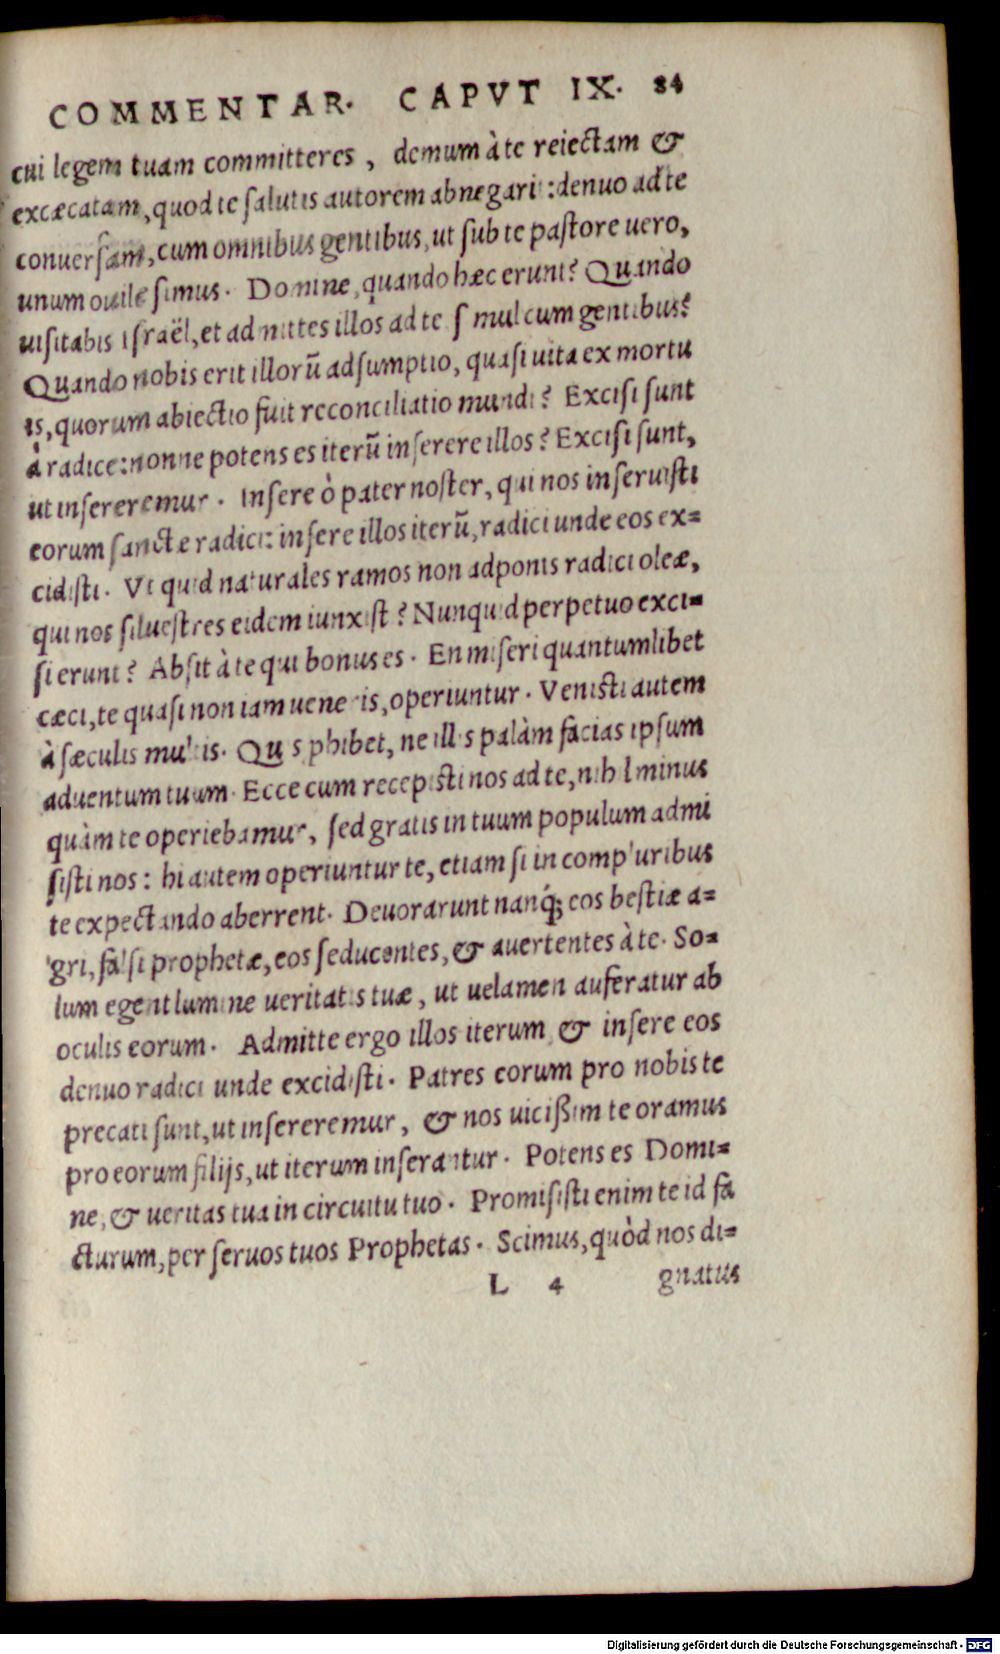 COMMENTAR. CAPVT IX. 84
cui legem tuam committeres, demum à te reiectam &
excæcatam, quod te salutis autorem abnegarit: denuo ad te
conuersam, cum omnibus gentibus, ut sub te pastore uero,
unum ouile simus. Domine, quando hæc erunt? Quando
uisitabis Israël, et admittes illos ad te simul cum gentibus?
Quando nobis erit illorũ adsumptio, quasi uita ex mortu
is, quorum abiectio fuit reconciliatio mundi? Excisi sunt
à radice: nonne potens es iterũ inserere illos? Excisi sunt,
ut insereremur. Insere ò pater noster, qui nos inseruisti
eorum sanctæ radici: insere illos iterũ, radici unde eos ex=
cidisti. Vt quid naturales ramos non adponis radici oleæ,
qui nos siluestres eidem iunxisti? Nunquid perpetuo exci=
si erunt? Absit à te qui bonus es. En miseri quantumlibet
cæci, te quasi non iam ueneris, operiuntur. Venisti autem
à sæculis multis. Quis phibet, ne illis palàm facias ipsum
aduentum tuum. Ecce cum recepisti nos ad te, nihil minus
quàm te operiebamur, sed gratis in tuum populum admi
sisti nos: hi autem operiuntur te, etiam si in compluribus
te expectando aberrent. Deuorarunt nanq́; eos bestiæ a=
gri, falsi prophetæ, eos seducentes, & auertentes à te. So=
lum egent lumine ueritatis tuæ, ut uelamen auferatur ab
oculis eorum. Admitte ergo illos iterum, & insere eos
denuo radici unde excidisti. Patres eorum pro nobis te
precati sunt, ut insereremur, & nos uicißim te oramus
pro eorum filijs, ut iterum inserantur. Potens es Domi=
ne, & ueritas tua in circuitu tuo. Promisisti enim te id fa
cturum, per seruos tuos Prophetas. Scimus, quòd nos di=
L 4 gnatus
Digitalisierung gefördert durch die Deutsche Forschungsgemeinschaft - DFG